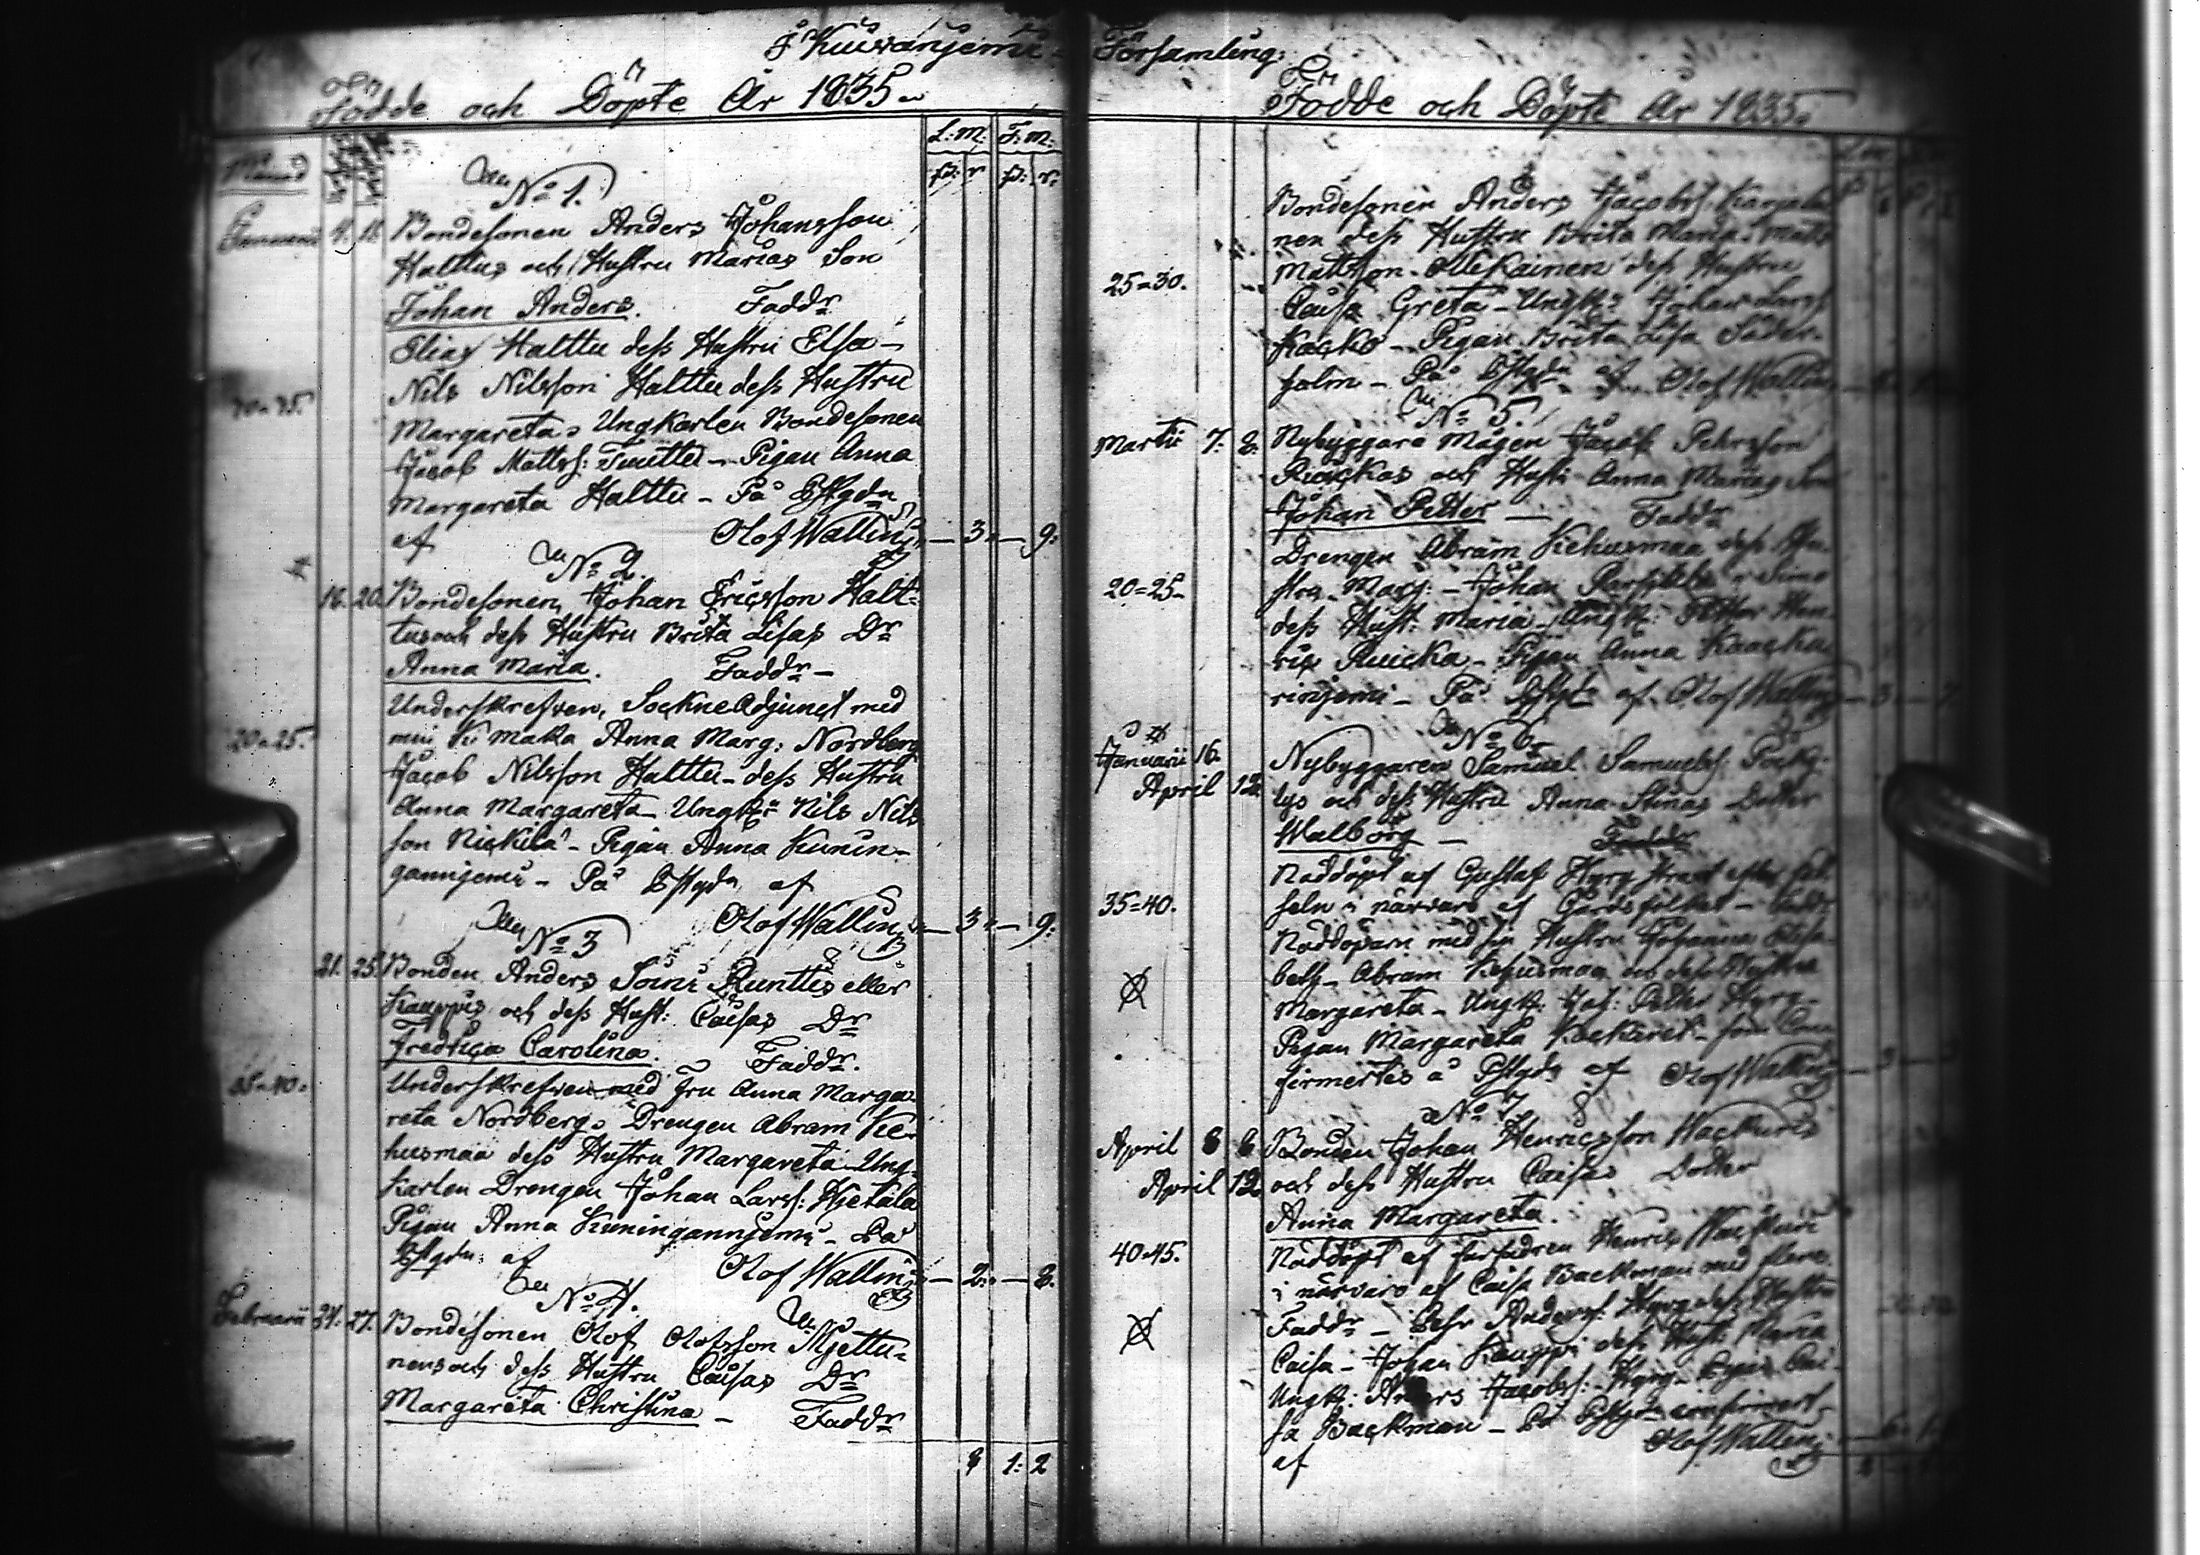 I Kuusanjemi Församling
Födde och Döpte År 1835
Månad
L: M: F: M:
No 1.
Januarii 9. 18. Bondesonen Anders Johansson
Halttus och Hustru Marias Son
Johan Anders. Faddr
Elias Halttu dess Hustru Elsa
Nils Nilsson Halttu dess Hustru
30=35.
Margareta, Ungkarlen Bondesonen
Jacob Mattss: Pigan Anna
Margareta Halttu - På
af Olof Wallin - 3. - 9.
No 2.
16. 20. Bondesonen, Johan Ericsson Halt-
tus och dess Hustru Brita Lisas Dr
Anna Maria. Faddr -
Underskrefven, SockneAdjunct med
20=25. min K: maka Anna Marg: Nordberg
Jacob Nilsson Halttu - dess Hustru
Anna Margareta - Ungk: Nils Nils
son Nickilä - Pigan Anna Kunin-
gannjemi - På af
Olof Wallin - 3. - 9.
No 3
21. 25. Bonden Anders Soini Runttis eller
Kauppis och dess Hust: Caisas Dr
Fredrica Carolina. Faddr.
35=40. Underskrefven med Fru Anna Marga-
reta Nordberg, Drengen Abram Kie-
husmaa dess Hustru Margareta Ung-
Karlen Drengen Johan Larss: Hietala
Pigan Anna Kuningannjemi - På
af Olof Wallin - 2. - 8.
No 4.
Februarii 24. 27. Bondesonen Olof Olofsson Mjettu-
nens och dess Hustru Caisas Dr
Margareta Christina - Faddr
8 1: 2
Födde och Döpte År 1835.
Bondesonen Anders Jacobss: Karjalai
nen dess Hustru Brita Maria: Matts
25=30. Mattsson Ollikainen dess Hustru
Caisa Greta - Ungk: Johan Larss
Kacko - Pigan Brita Lisa Söder-
holm - På af Olof Wallin
No 5.
Martii 7. 8. Nybyggare Mågen Jacob Pehrsson
Ruickas och Hust: Anna Marias Son
Johan Petter - Faddr
Drengen Abram Kiehusmaa dess Hu-
20=25 stru Marg: - Johan Simo
dess Hust: Maria, Ungk: Petter Hen-
ric Ruicka - Pigan Anna Kaacka
rinjemi - På af Olof Wallin - 3 - 7
No 6.
Januarii 16. Nybyggaren Samuel Samuelss:
April 12. och dess Hustru Anna Stinas Dotter
Walborg - Faddr
Nöddöpt af Gustaf Hyry
35=40. seln i närvaro af Gårdsfolket -
Nöddöparn med sin Hustru Johanna Elisa-
beth - Abram Kehusmaa och dess Hustru
Margareta - Ungk: Joh: Petter Hyry -
Pigan Margareta som Con
firmertes å af Olof Wallin - 3
No 7
April 8 8 Bonden Johan Henricsson Wackuris
April 12. och dess Hustru Caisas Dotter
Anna Margareta.
40=45. Nöddöpt af farfadren Henric med flere
i närvaro af Caisa Backman
Faddr - Pehr Anderss: Hyry dess Hustru
Caisa - Johan Kauppi dess Hust: Maria
Ungk: Anders Jacobss: Hyry - Pigan Cai-
sa Backman - På confirmert
af Olof Wallin